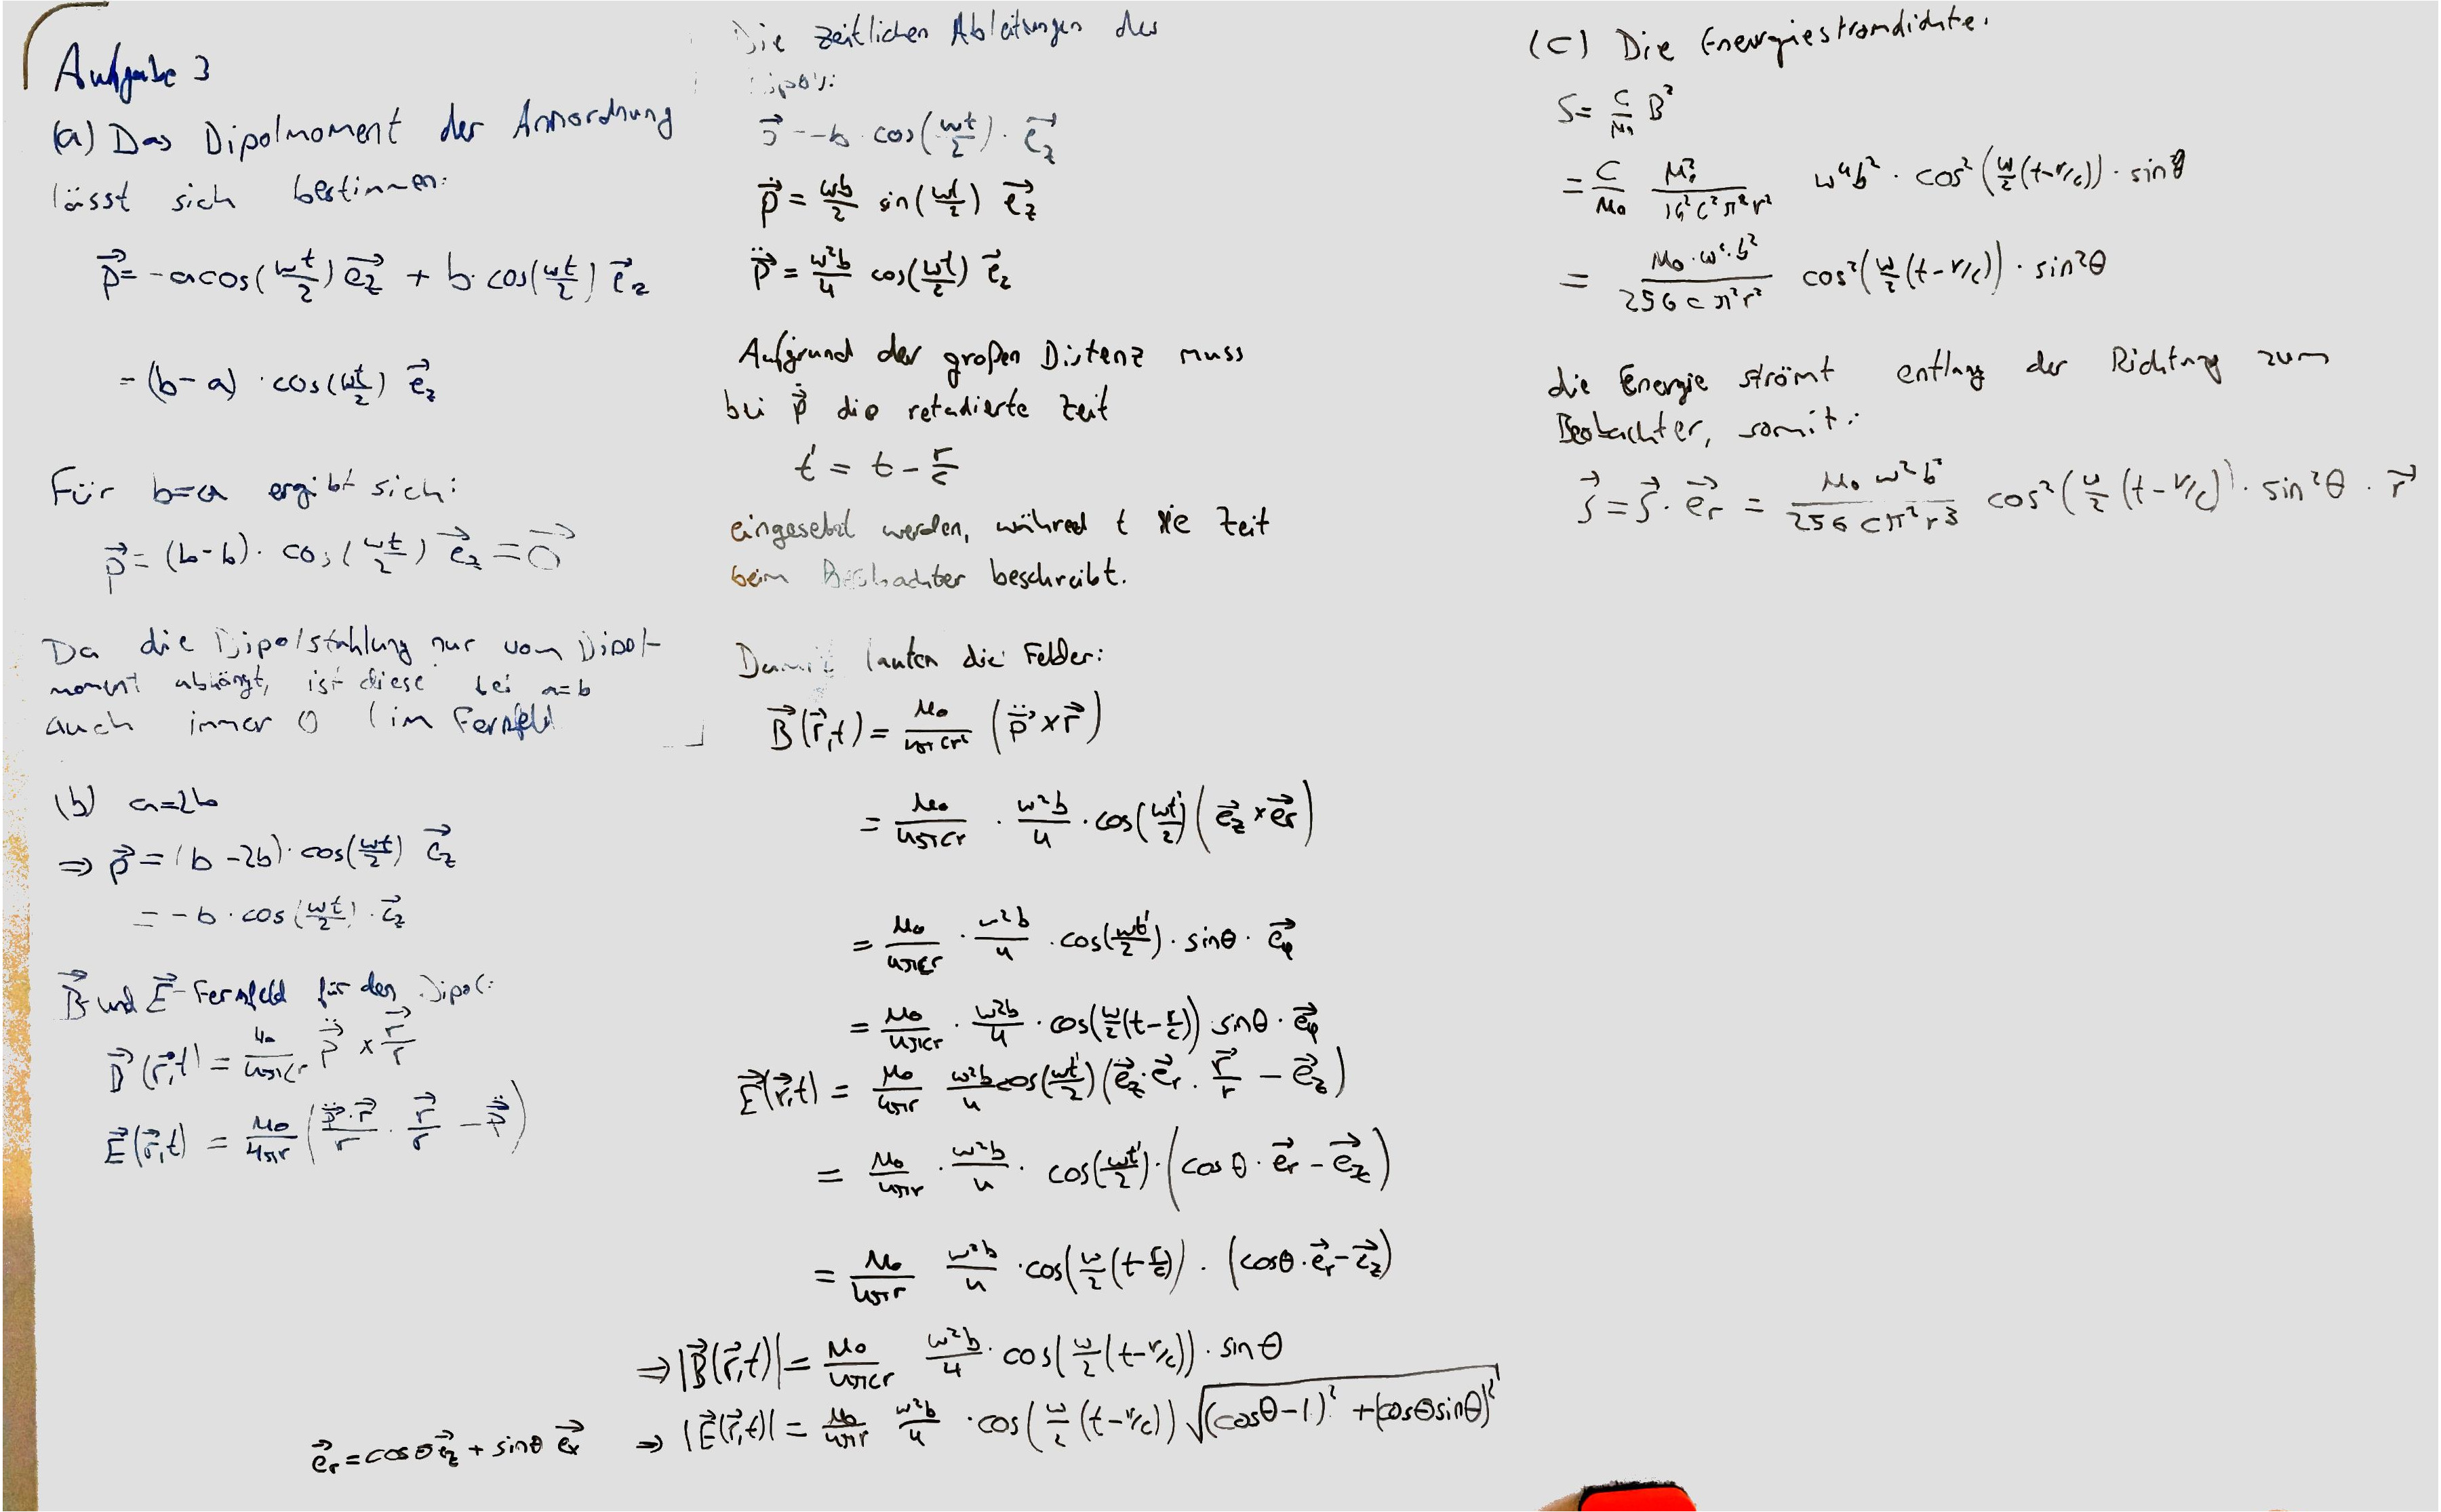 Aufgabe 3
(a) Das Dipolmoment der Annordnung
lässt sich bestimmen:
p⃗ = -a cos(ωt/2) e⃗_z + b·cos(ωt/2) e⃗_z
= (b-a) · cos(ωt/2) e⃗_z
Für b=a ergibt sich:
p⃗ = (b-b)· cos(ωt/2) e⃗_z = 0⃗
Da die Dipolstahlung nur vom Dipol-
moment abhängt, ist diese bei a=b
auch immer 0 (im Fernfeld
(b) a=2b
⇒ p⃗ = (b-2b)· cos(ωt/2) e⃗_z
= -b · cos(ωt/2) · e⃗_z
B⃗- und E⃗-Fernfeld für den Dipol:
B⃗(r⃗,t) = μ₀/(4πcr) p̈⃗ × r⃗/r
E⃗(r⃗,t) = μ₀/(4πr) (p̈⃗·r⃗/r · r⃗/r - p̈⃗)
Die zeitlichen Ableitungen des
Dipols:
p⃗ = -b · cos(ωt/2) · e⃗_z
ṗ⃗ = ωb/2 sin(ωt/2) e⃗_z
p̈⃗ = ω²b/4 cos(ωt/2) e⃗_z
Aufgrund der großen Distenz muss
bei p̈⃗ die retadierte Zeit
t' = t - r/c
eingesetzt werden, während t die Zeit
beim Beobachter beschreibt.
Damit lauten die Felder:
B⃗(r⃗,t) = μ₀/(4πcr²) (p̈⃗ × r⃗)
= μ₀/(4πcr) · ω²b/4 · cos(ωt'/2) (e⃗_z × e⃗_r)
= μ₀/(4πcr) · ω²b/4 · cos(ωt'/2) · sinθ · e⃗_φ
= μ₀/(4πcr) · ω²b/4 · cos(ω/2(t-r/c)) sinθ · e⃗_φ
E⃗(r⃗,t) = μ₀/(4πr) ω²b/4 cos(ωt'/2) (e⃗_z·e⃗_r · r⃗/r - e⃗_z)
= μ₀/(4πr) · ω²b/4 · cos(ωt'/2) · (cosθ · e⃗_r - e⃗_z)
= μ₀/(4πr) ω²b/4 · cos(ω/2(t-r/c)) · (cosθ · e⃗_r - e⃗_z)
⇒ |B⃗(r⃗,t)| = μ₀/(4πcr) ω²b/4 · cos(ω/2(t-r/c)) · sinθ
e⃗_r = cosθ e⃗_z + sinθ e⃗_x
⇒ |E⃗(r⃗,t)| = μ₀/(4πr) ω²b/4 · cos(ω/2(t-r/c)) √((cosθ-1)² + (cosθ sinθ)²)
(c) Die Energiestromdichte.
S = c/μ₀ B²
= c/μ₀ μ₀²/(16²c²π²r²) ω⁴b² · cos²(ω/2(t-r/c)) · sin²θ
= μ₀·ω⁴·b²/(256cπ²r²) cos²(ω/2(t-r/c)) · sin²θ
die Energie strömt entlang der Richtung zum
Beobachter, somit:
S⃗ = S · e⃗_r = μ₀ω²b²/(256cπ²r³) cos²(ω/2(t-r/c)) · sin²θ · r⃗